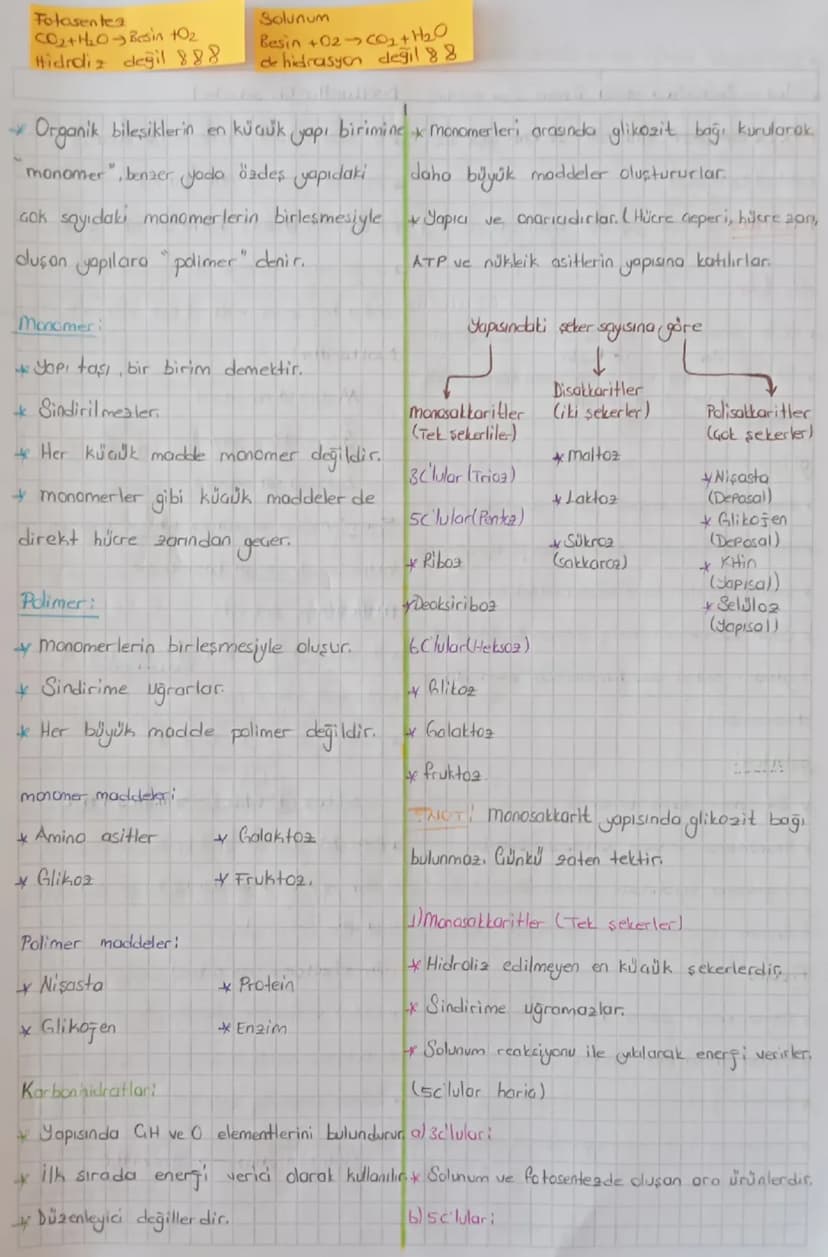 Fotosentez
CO₂+H₂O→Besin +O₂
Hidroliz değil 888
Solunum
Besin +O2→CO₂+H₂O
dehidrasyon değil 88
* Organik bileşiklerin en küçük yapı birimine
"monomer", benzer yada özdeş yapıdaki
çok sayıdaki monomerlerin birleşmesiyle
oluşan yapılara "polimer" denir.
Monomer:
* Yapı taşı, bir birim demektir.
* Sindirilmezler.
* Her küçük madde monomer değildir.
* monomerler gibi küçük maddeler de
direkt hücre zarından geçer.
Polimer:
* monomerlerin birleşmesiyle oluşur.
* Sindirime uğrarlar.
* Her büyük madde polimer değildir.
monomer maddeleri
* Amino asitler * Galaktoz
* Glikoz * Fruktoz.
Polimer maddeler:
* Nişasta * Protein
* Glikojen * Enzim
Karbonhidratlar:
* Yapısında C,H ve O elementlerini bulundurur
* İlk sırada enerji verici olarak kullanılır
* Düzenleyici değillerdir.
* monomerleri arasında glikozit bağı kurularak
daha büyük maddeler oluştururlar.
* Yapıcı ve onarıcıdırlar. (Hücre çeperi, hücre zarı,
ATP ve nükleik asitlerin yapısına katılırlar.
Yapısındaki şeker sayısına göre
monosakkaritler
(Tek şekerliler)
3C'lular (Trioz)
5C'lular(Pentoz)
* Riboz
* Deoksiriboz
6C'lular(Heksoz)
* Glikoz
* Galaktoz
* fruktoz
Disakkaritler
(iki şekerler)
* maltoz
* Laktoz
* Sükroz
(sakkaroz)
Polisakkaritler
(Çok şekerler)
* Nişasta
(Deposal)
* Glikojen
(Deposal)
* Kitin
(Yapısal)
* Selüloz
(Yapısal)
NOT: monosakkarit yapısında glikozit bağı
bulunmaz. Çünkü zaten tektir.
1) Monosakkaritler (Tek şekerler)
* Hidroliz edilmeyen en küçük şekerlerdir.
* Sindirime uğramazlar.
* Solunum reaksiyonu ile yıkılarak enerji verirler.
(5C'lular hariç)
a) 3C'lular:
* Solunum ve fotosentezde oluşan ara ürünlerdir.
b) 5C'lular: